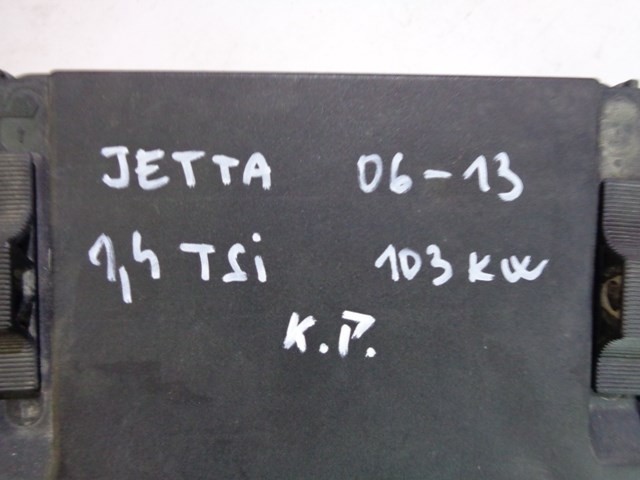 JETTA 06-13
1,4 TSi 103 KW
K.P.